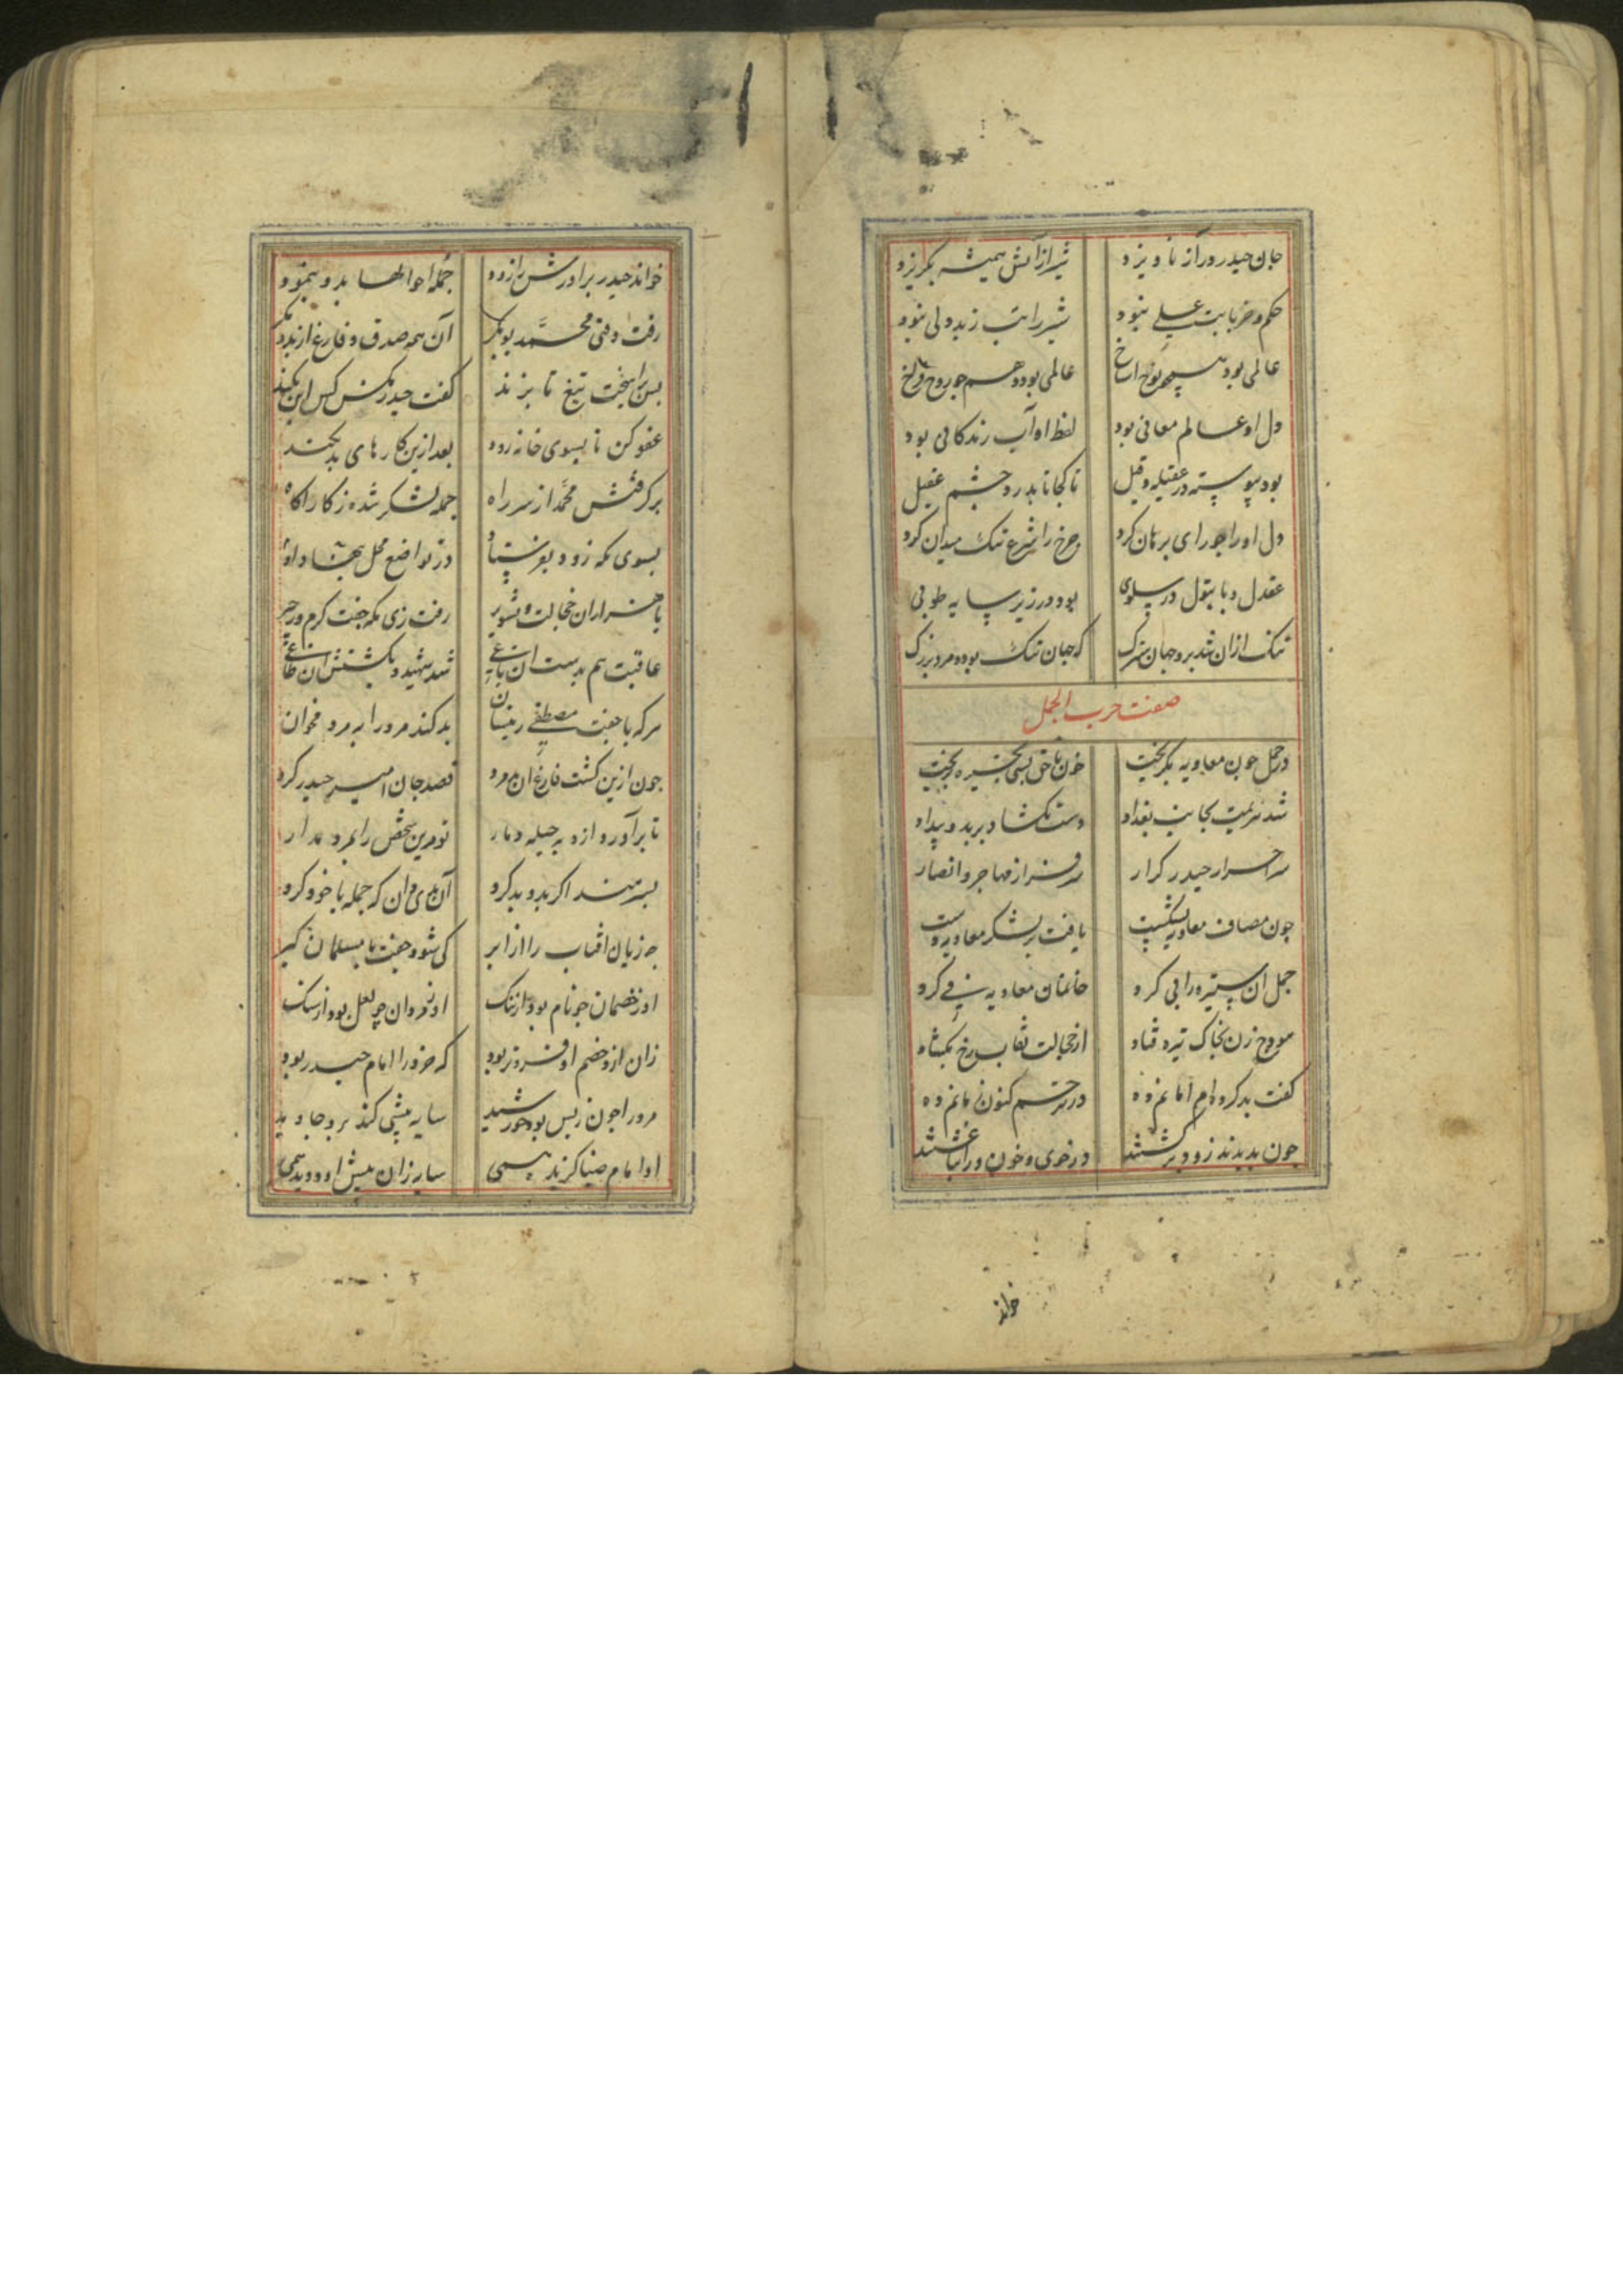 جان حیدر ورا ز ناویزد شیر از آتش همیشه بگریزد
حکم و خر بابت علی نبود شیر را تب ز بددلی نبود
عالمی بود همچو نوح عالمی بود هم چو روح
دل او عالم معانی بود لفظ او آب زندگانی بود
بود پیوسته در عقیله و قیل تا کجا تا بدر و چشم عقیل
دل او را چو رای برهان کرد چرخ را شرع تنک میدان کرد
عقدل و با بتول در سلوی بود در زیر سایه طوبی
تنک ازان شد برو جهان سترک که جهان تنک بود و مرد بزرک
صفت حرب الجمل
در جمل چون معاویه بکریخت خون ناحق بسی بخیره بریخت
شد هزیمت بجانب بغداد دست بکشاد بر بد و بیداد
سر احرار حیدر کرار سرفراز مهاجر و انصار
چون مصاف معاویه بشکست یافت بر لشکر معاویه دست
جمل آن ستیزه را پی کرد خانمان معاویه فی کرد
هودج زن بخاک تیره فتاد از خجالت نقاب رخ بکشاد
کفت بد کرده‌ام امانم ده در ترحم کنون زمانم ده
چون بدیدند زود برکشتند در خوی و خون ورا بیاغشتند
خواند
خواند حیدر برادرش را زود جمله احوالها بدو بنمود
رفت وقتی محمد بوبکر آن همه صدق و فارغ از بد و مکر
پس برآهیخت تیغ تا بزند کفت حیدر مکن کس این نکند
عفو کن تا بسوی خانه رود بعد ازین کارهای بد نکند
برکرفتش محمد از سر راه جمله لشکر شده ز کار آکاه
بسوی مکه زود بفرستاد در تواضع محل بنهاد و داد
با هزاران خجالت و تشویر رفت زی مکه جفت کرم و زحیر
عاقبت هم بدست آن باغی شد شهید و بکشتش آن طاغی
هرکه با جفت مصطفی زینسان بد کند مر ورا به مرد مخوان
چون ازین کشت فارغ آن بد مرد قصد جان امیر حیدر کرد
تا برآورد ازو به حیله دمار تو مرین شخص را بمرد مدار
پسر هند اکر بدو بد کرد آن بدی دان که جمله با خود کرد
چه زیان آفتاب را از ابر کی شود جفت با مسلمان کبر
او ز خصمان چو نام بود از ننک او ز مروان چو لعل بود از سنک
زان ازو خصم او فروتر بود که خرد را امام حیدر بود
مر ورا چون ز پس بود خورشید سایه پیشی کند برو جاوید
او امام ضیا کزید همی سایه زان پیش او دوید همی